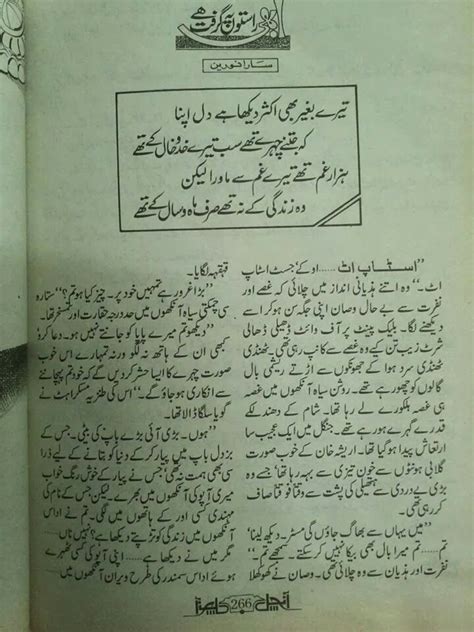 ابھی راستوں پہ گرفت ہے
سارا نورین
تیرے بغیر بھی اکثر دیکھا ہے دل اپنا
کہ جتنے چہرے تھے سب تیرے خدوخال کے تھے
ہزار غم تھے تیرے غم سے ماورا لیکن
وہ زندگی کے نہ تھے صرف ماہ و سال کے تھے
”اسٹاپ اٹ ...... او کے‘ جسٹ اسٹاپ
اٹ۔“ وہ اتنے ہذیانی انداز میں چلائی کہ غصے اور
نفرت سے بے حال وصان اپنی جگہ سن ہوکر اسے
دیکھنے لگا۔ بلیک پینٹ پر آف وائٹ ڈھیلی ڈھالی
شرٹ زیب تن کیے وہ غصے سے کانپ رہی تھی۔ ٹھنڈی
ٹھنڈی سرد ہوا کے جھونکوں سے اڑتی رہی تھی۔
آنکھوں سے گھور رہے تھے۔ روشن سیاہ آنکھوں میں غصہ
غم ہلکورے لے رہا تھا۔ شام کے دھندلکے
قدرے گہرے ہورہے تھے۔ جنگل میں ایک عجیب سا
ارتعاش پیدا ہورہا تھا۔ اریشہ خان کے خوب صورت
گلابی ہونٹوں سے خون تیزی سے بہہ رہا تھا‘ جسے وہ
بڑی بے دردی سے ہتھیلی کی پشت سے وقتاً فوقتاً صاف
کررہی تھی۔
”میں یہاں سے بھاگ جاؤں گی مسٹر۔ دیکھ لینا‘
تم ...... تم میرا بال بھی بیکا نہیں کرسکتے۔ سمجھے تم۔“
نفرت اور ہذیان سے وہ چلائی تھی۔ وصان نے کھوکھلا
قہقہہ لگایا۔
”بڑا غرور ہے تمہیں خود پر۔ چیز کیا ہو تم؟“ ستارہ
سی چمکتی سیاہ آنکھوں میں حد درجہ حقارت اور تمسخر تھا۔
”دیکھو تم میرے پاپا کو جانتے نہیں ہو۔ دعا کرو
کبھی ان کے ہاتھ نہ لگو ورنہ تمہارے اس خوب
صورت چہرے کا ایسا حشر کریں گے کہ خود تم پہچاننے
سے انکاری ہوجاؤ گے۔“ اس کی طنزیہ مسکراہٹ نے
گویا سلگا ڈالا تھا۔
”ہوں۔ بڑی آئی بڑے باپ کی بیٹی۔ جس کے
بزدل باپ میں پیار کرکے دنیا کو بتانے کے لیے ذرا
سی بھی ہمت نہ تھی‘ جس نے پیار کے خوش رنگ خواب
میری آپو کی آنکھوں میں بھرے لیکن جس کے نام کی
مہندی کسی اور کے ہاتھوں میں لگی۔ تم نے اداس
آنکھوں میں درد کو تڑپتے نہیں دیکھا ہے ......
مگر میں نے دیکھا ہے ...... اپنی آپو کی ٹھہرے
ہوئے اداس سمندر کی طرح ویران آنکھوں میں
آنچل 266